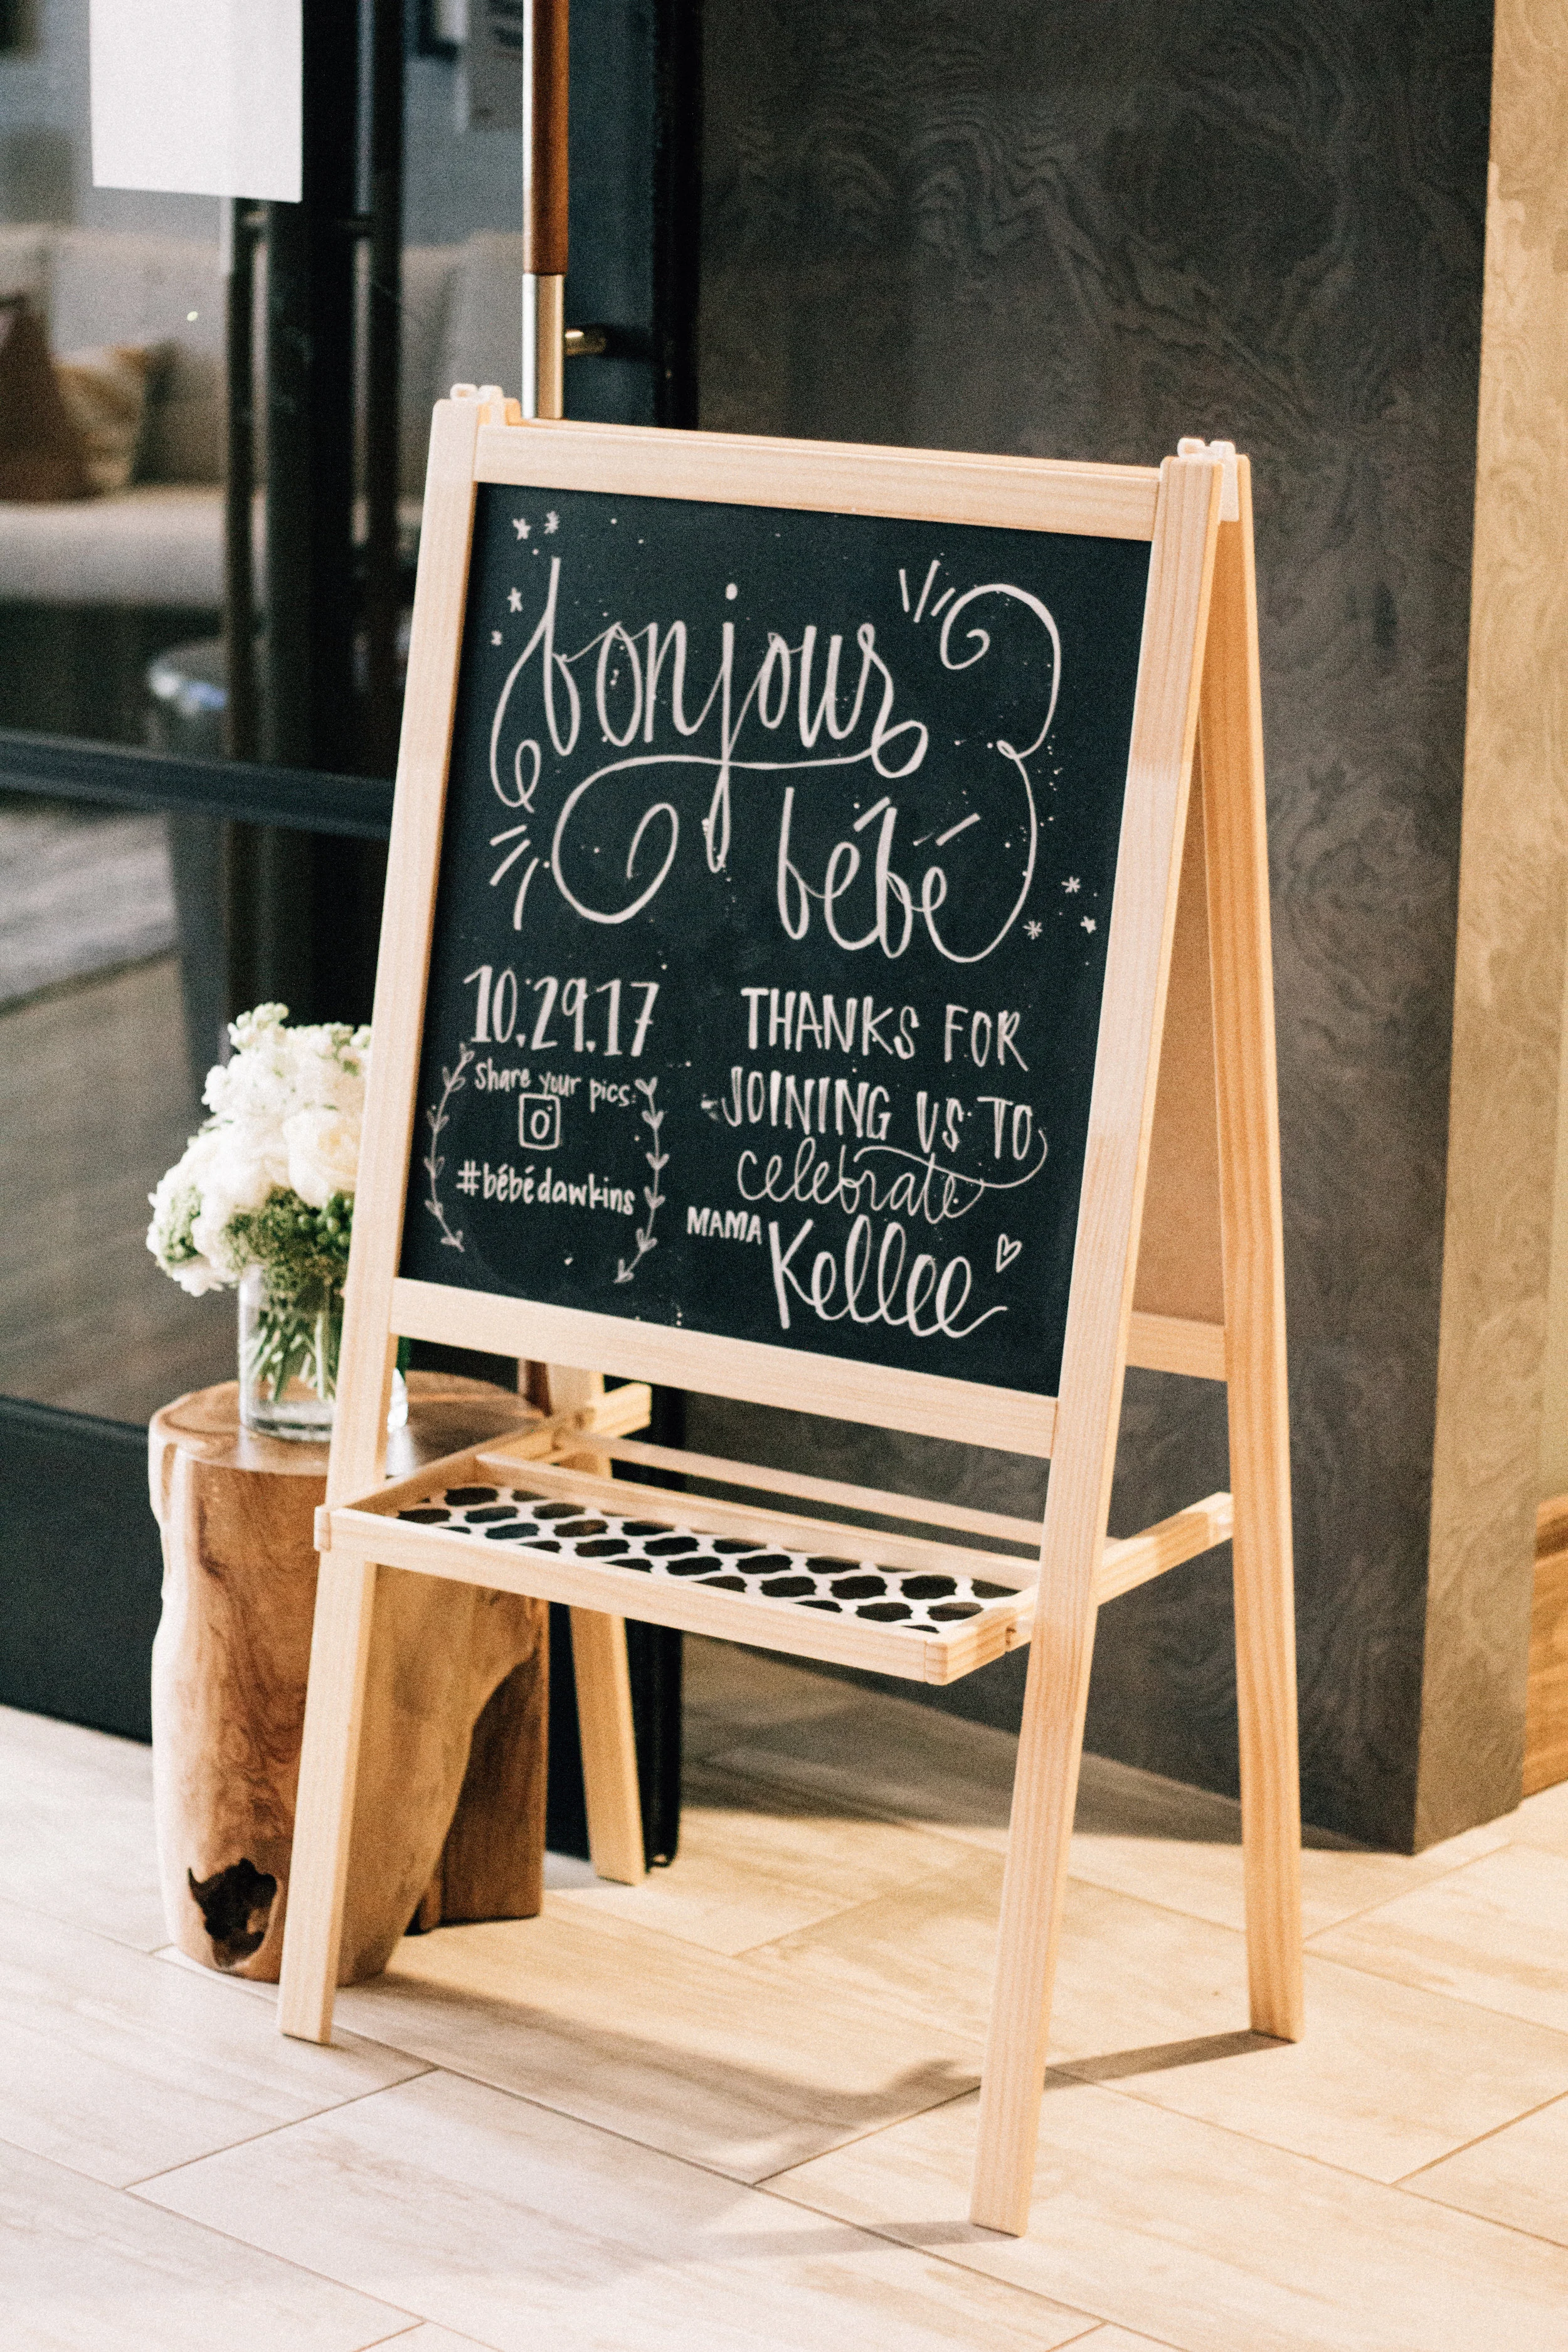 bonjour
bébé
10.29.17
Share your pics:
#bébédawkins
THANKS FOR
JOINING US TO
celebrate
MAMA Kellee